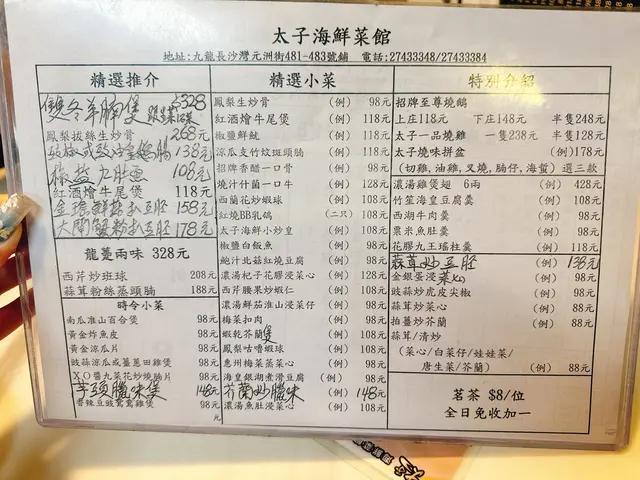 太子海鮮菜館
地址:九龍長沙灣元洲街481-483號舖 電話:27433348/27433384
精選推介
雙冬羊腩煲 $328
鳳梨拔絲生炒骨 268元
138元
椒鹽九肚魚 108元
紅酒燴牛尾煲 118元
金瑤鮮菇扒豆苗 158元
大閘蟹粉扒豆苗 178元
龍躉兩味 328元
西芹炒班球 208元
蒜茸粉絲蒸頭腩 188元
時令小菜
南瓜淮山百合煲 98元
黃金炸魚皮 98元
黃金涼瓜片 98元
豉蒜涼瓜或薑蔥田雞煲 98元
XO醬九菜花炒燒腩片 98元
芋頭臘味煲 148元
香辣豆豉鴛鴦雞煲 98元
元
精選小菜
鳳梨生炒骨 (例) 98元
紅酒燴牛尾煲 (例) 118元
椒鹽鮮魷 (例) 118元
涼瓜支竹炆斑頭腩 (例) 118元
招牌香醋一口骨 (例) 98元
燒汁什菌一口牛 (例) 128元
西蘭花炒蝦球 (例) 108元
紅燒BB乳鴿 (二只) 108元
太子海鮮小炒皇 (例) 108元
椒鹽白飯魚 (例) 98元
鮑汁北菇紅燒豆腐 (例) 98元
濃湯杞子花膠浸菜心 (例) 128元
西芹腰果炒蝦仁 (例) 108元
濃湯鮮茄淮山浸菜仔 (例) 108元
梅菜扣肉 (例) 98元
蝦乾芥蘭煲 (例) 98元
鳳梨咕嚕蝦球 (例) 108元
惠州梅菜蒸菜心 (例) 98元
海皇銀湖煮滑豆腐 (例) 98元
芥蘭炒臘味 148元
濃湯魚肚浸菜心 (例) 108元
特別介紹
招牌至尊燒鵝
上庄118元 下庄148元 半隻248元
太子一品燒雞 一隻238元 半隻128元
太子燒味拼盆 (例)178元
(切雞,油雞,叉燒,腩仔,海蜇) 選三款
濃湯雞煲翅 6兩 (例) 428元
竹笙海皇豆腐羹 (例) 108元
西湖牛肉羹 (例) 98元
粟米魚肚羹 (例) 98元
花膠九王瑤柱羹 (例) 118元
蒜茸炒豆苗 (例) 138元
金銀蛋浸菜心 (例) 98元
豉蒜炒虎皮尖椒 (例) 98元
蒜茸炒菜心 (例) 88元
拍薑炒芥蘭 (例) 88元
蒜茸/清炒
(菜心/白菜仔/娃娃菜/
唐生菜/芥蘭) (例) 88元
茗茶 $8/位
全日免收加一